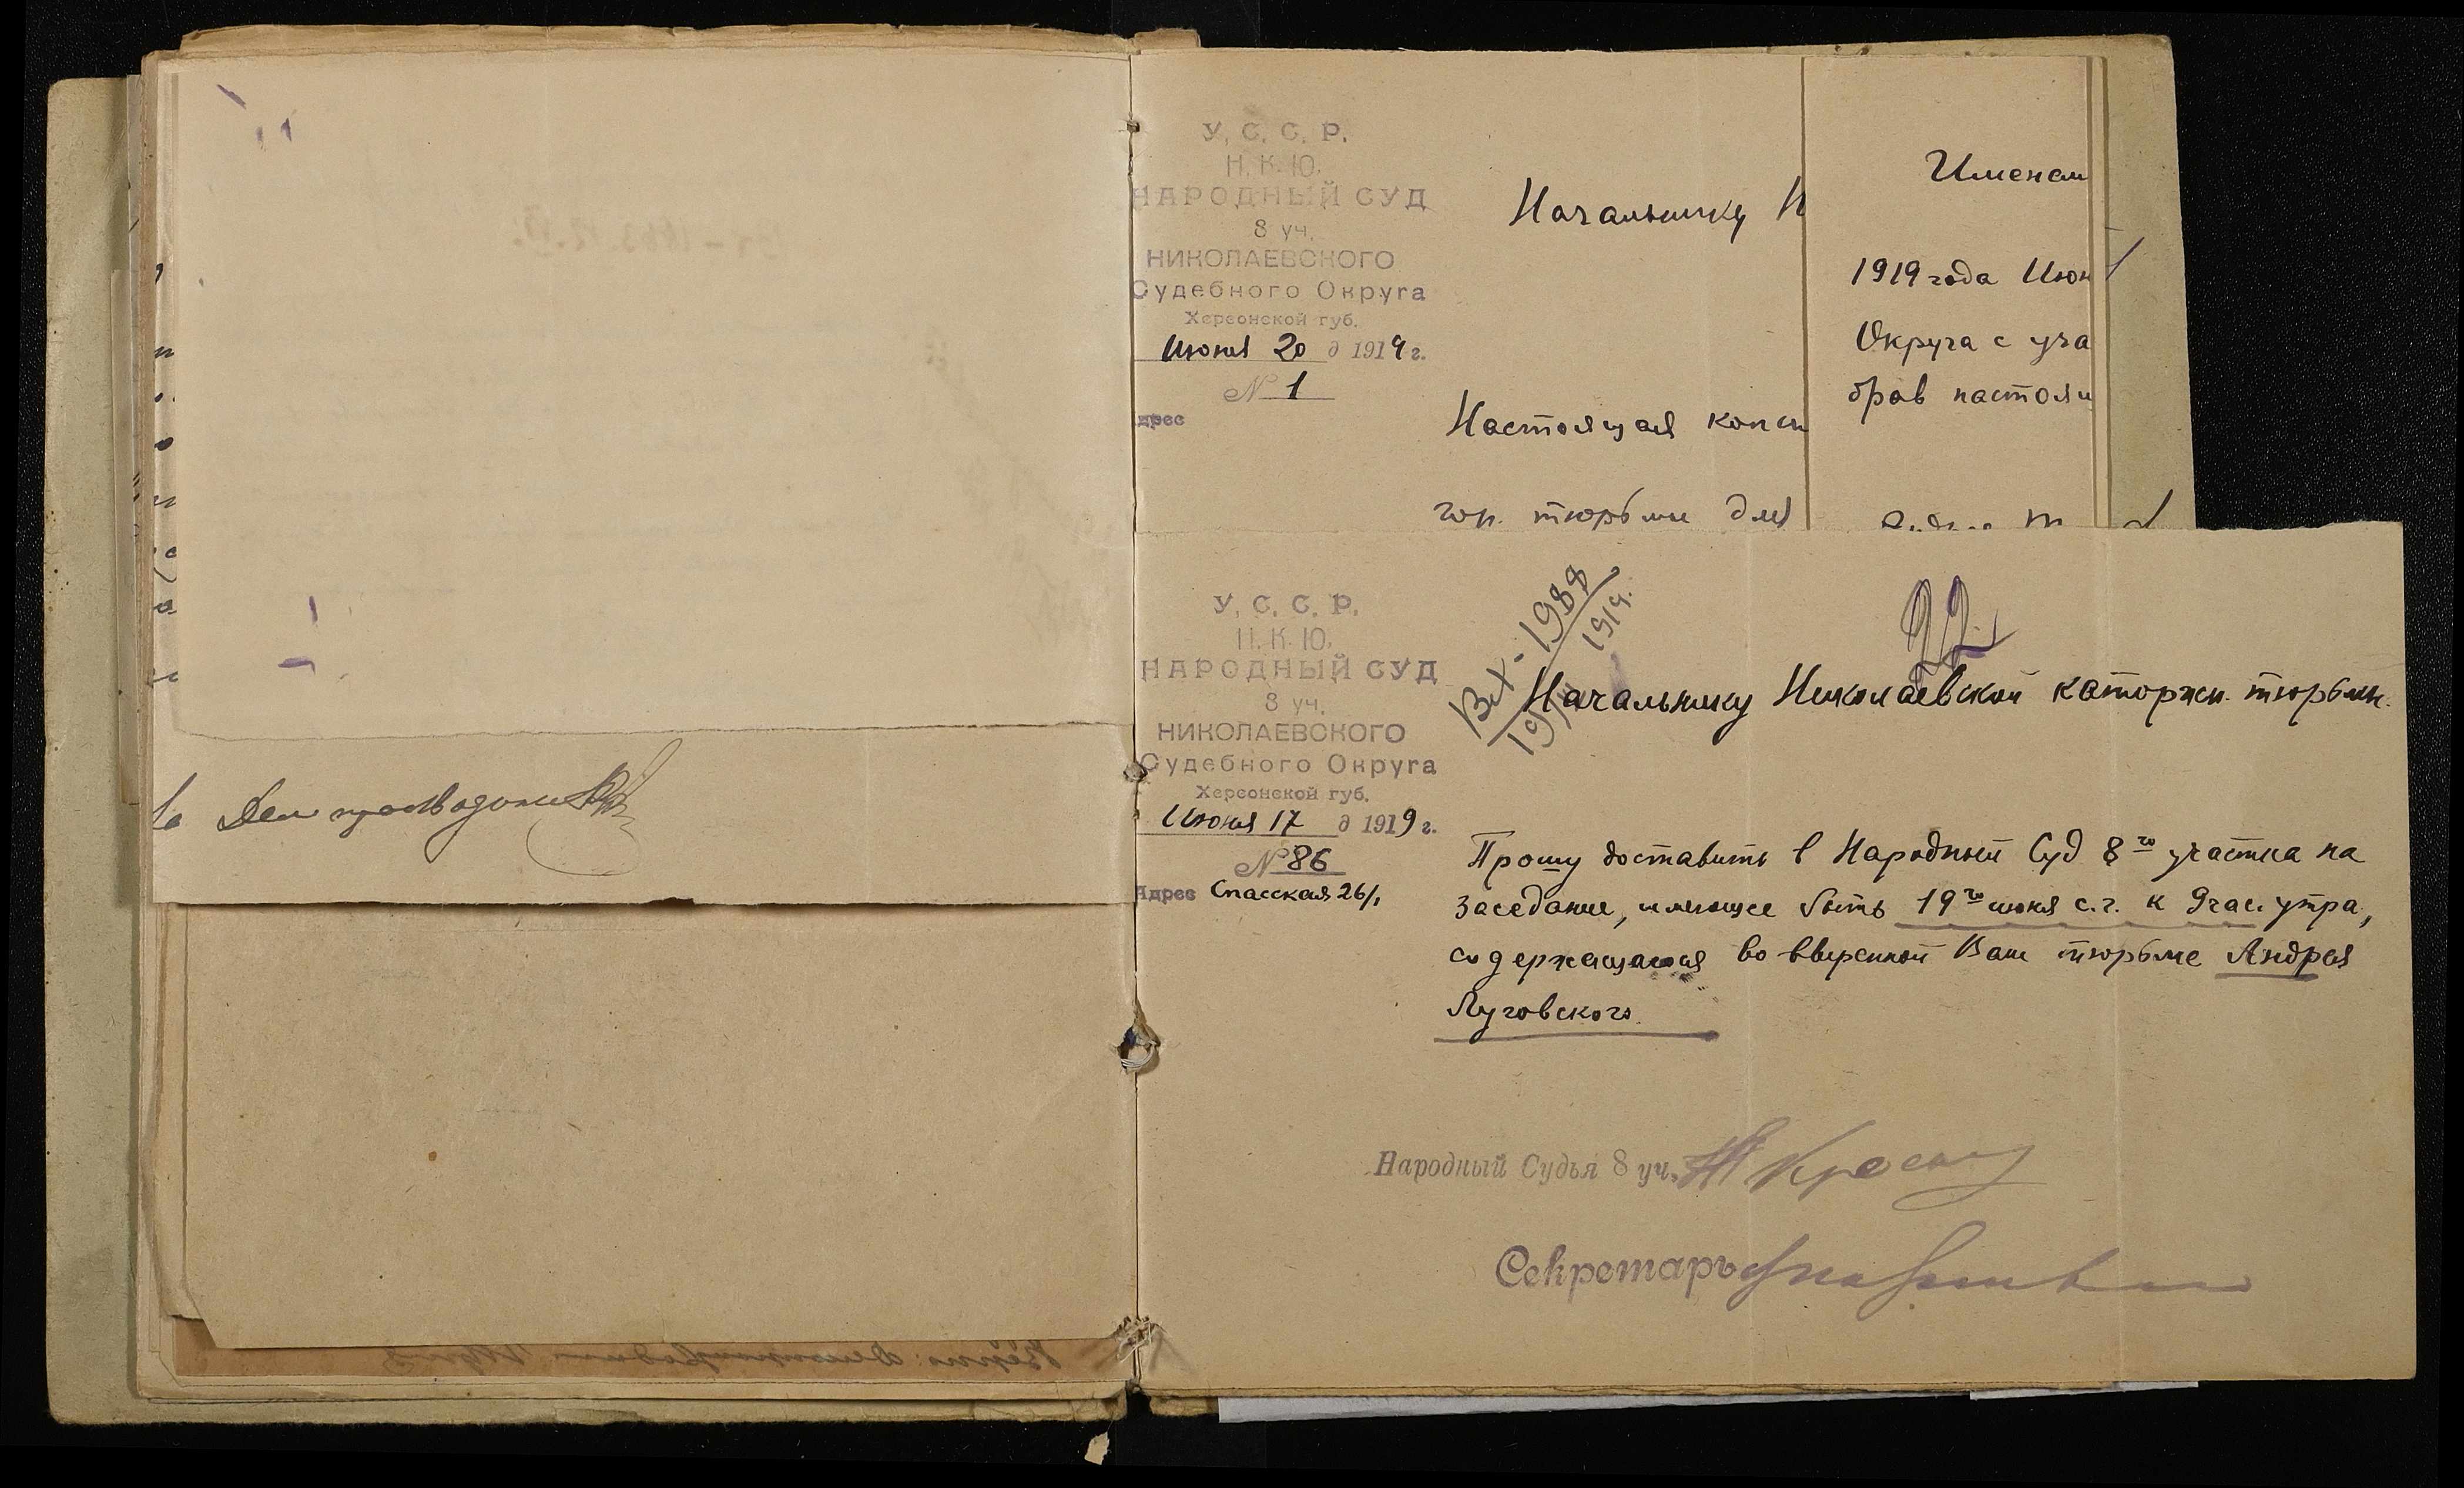 У. С. С. Р.
Н. К. Ю.
НАРОДНЫЙ СУД
8 уч.
НИКОЛАЕВСКОГО
Судебного Округа
Херсонской губ.
Июня 20 д 1919 г.
№ 1
дрес
Начальнику Н
Настоящая копи
тюрьмы для
Именем
1919 года Июн
Округа с уча
брав настоящ
Дело
У. С. С. Р.
Н. К. Ю.
НАРОДНЫЙ СУД
8 уч.
НИКОЛАЕВСКОГО
Судебного Округа
Херсонской губ.
Июня 17 д 1919 г.
№ 86
Адрес Спасская 26/1
Вх - 1988
1919.
22
Начальнику Николаевской каторжн. тюрьмы.
Прошу доставить в Народный Суд 8го участка на
заседание, имеющее быть 19го июня с.г. к 9 час. утра,
содержащагося во вверенной Вам тюрьме Андрея
Луговского.
Народный Судья 8 уч.
Секретарь